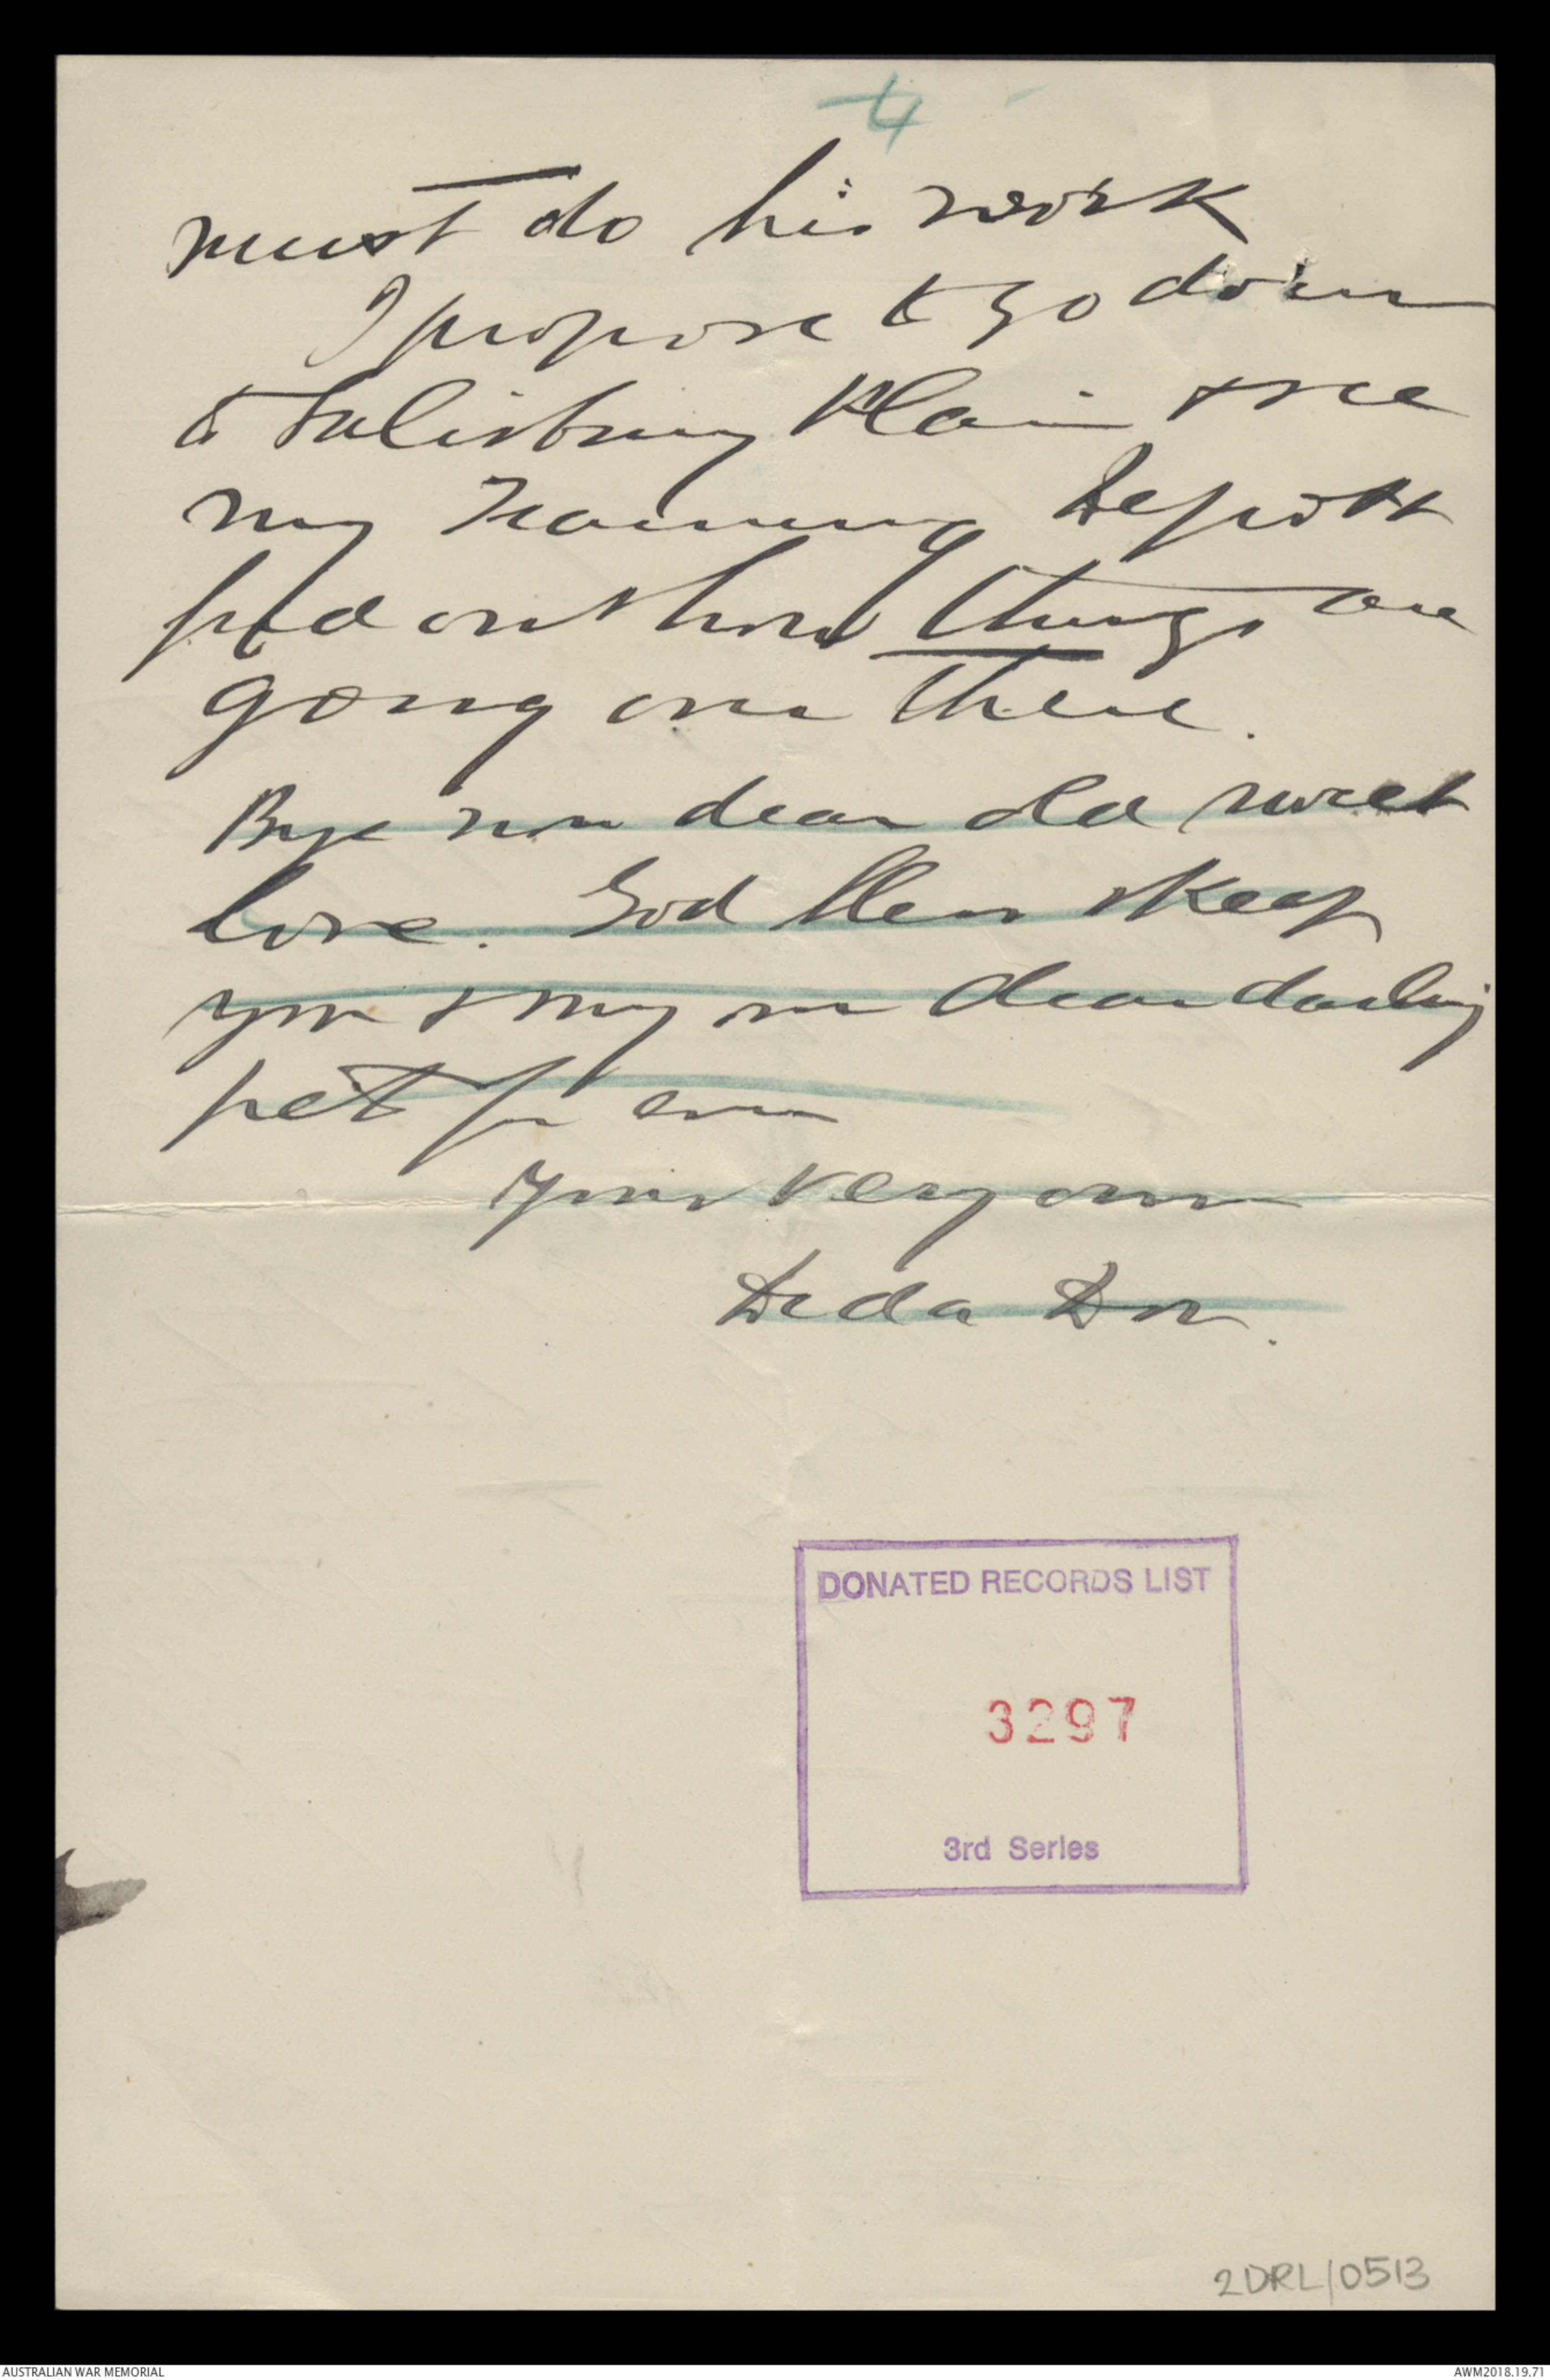 4
must do his work
I propose to go down
to Salisbury Plain & see
my Training Depot &
find out how things are
going on there.
Bye now dear old sweet
love. God bless & keep
you & my own dear darling
pet for ever
Your very own
Deda Don.
DONATED RECORDS LIST
3297
3rd Series
2DRL/0513
AUSTRALIAN WAR MEMORIAL
AWM2018.19.71